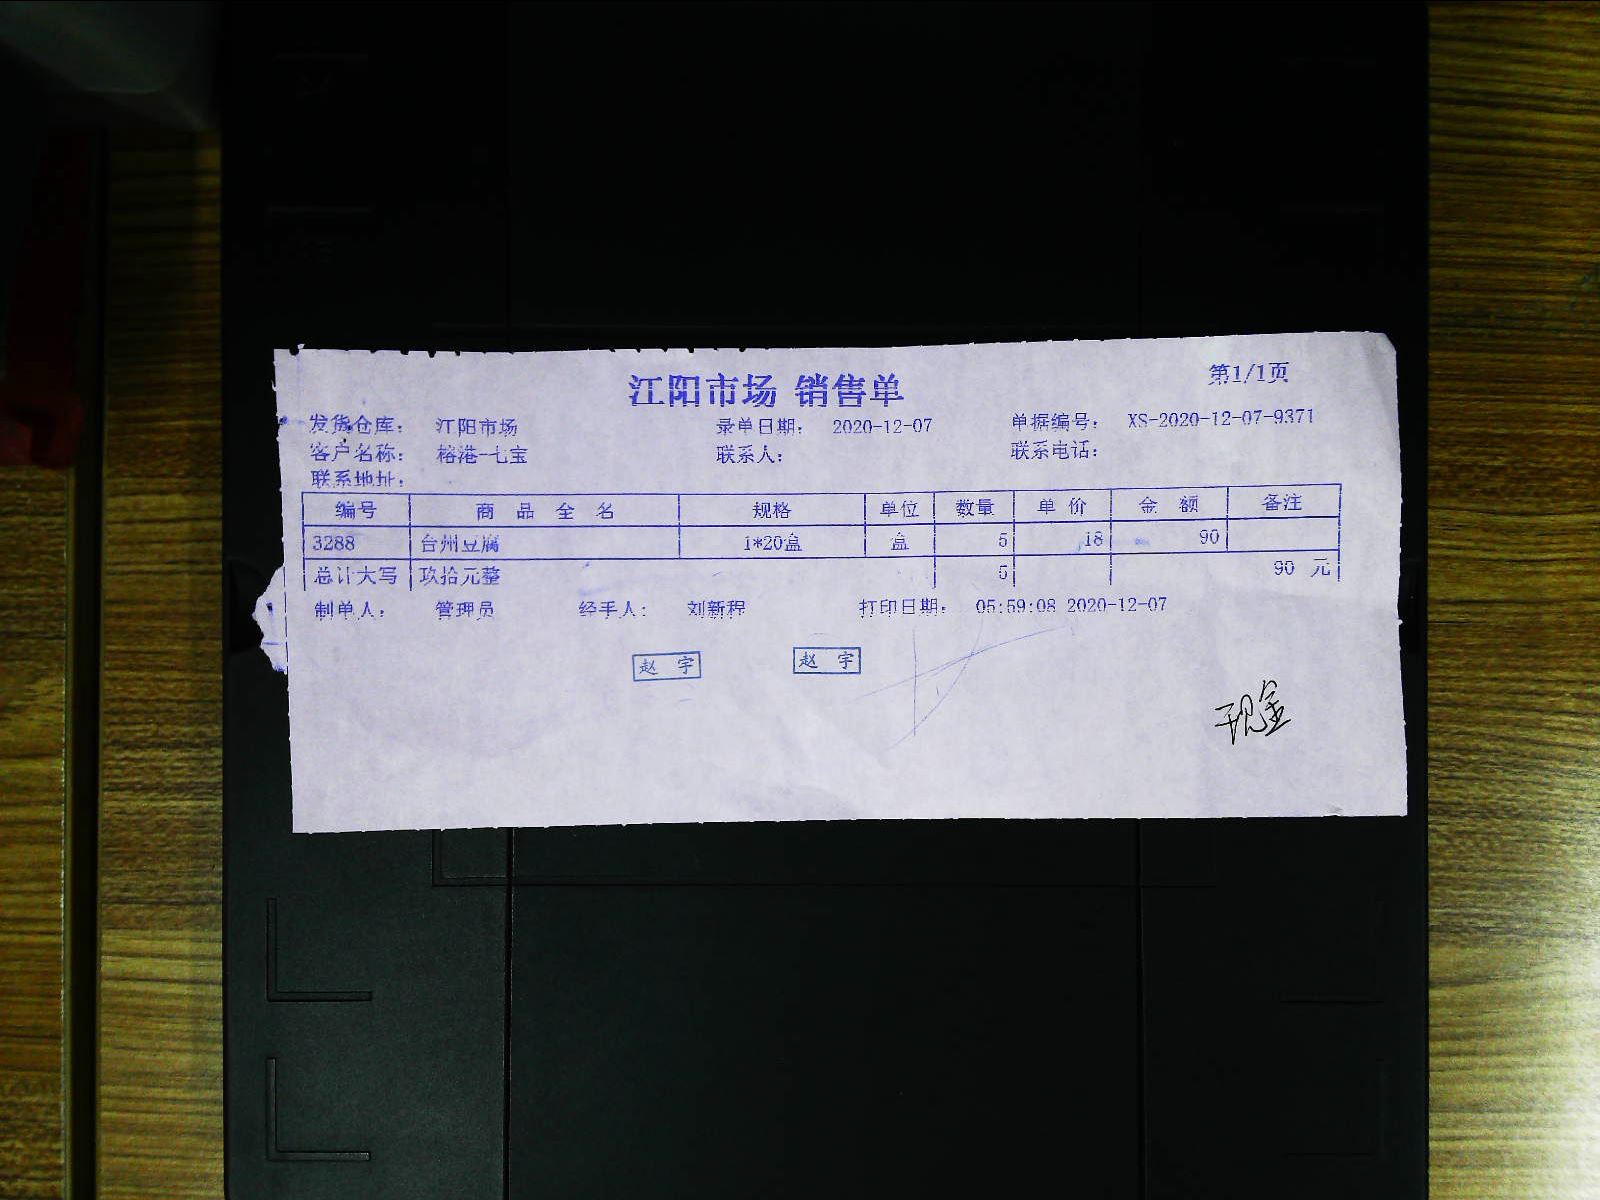 第1/1页
江阳市场 销售单
发货仓库： 江阳市场 录单日期： 2020-12-07 单据编号： XS-2020-12-07-9371
客户名称： 榕港-七宝 联系人： 联系电话：
联系地址：
编号 商品全名 规格 单位 数量 单价 金额 备注
3288 台州豆腐 1*20盒 盒 5 18 90
总计大写 玖拾元整 5 90 元
制单人： 管理员 经手人： 刘新程 打印日期： 05:59:08 2020-12-07
赵宇 赵宇
现金